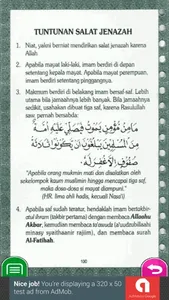 TUNTUNAN SALAT JENAZAH
1. Niat, yakni berniat mendirikan salat jenazah karena
Allah.
2. Apabila mayat laki-laki, imam berdiri di depan
setentang kepala mayat. Apabila mayat perempuan,
imam berdiri setentang pinggangnya.
3. Makmum berdiri di belakang imam bersaf-saf. Lebih
utama bila jamaahnya lebih banyak. Bila jamaahnya
sedikit, usahakan dibuat tiga saf, karena Rasulullah
saw. pernah bersabda:
مَا مِنْ مُؤْمِنٍ يَمُوْتُ فَيُصَلِّيْ عَلَيْهِ أُمَّةٌ
مِنَ الْمُسْلِمِيْنَ يَبْلُغُوْنَ أَنْ يَكُوْنُوْا ثَلَاثَةَ
صُفُوْفٍ إِلَّا غُفِرَ لَهُ
"Apabila orang mukmin mati dan disalatkan oleh
sekelompok kaum muslimin hingga mencapai tiga saf,
maka dosa-dosa si mayat diampuni."
(HR. lima ahli hadis, kecuali Nasa'i)
4. Apabila saf sudah teratur, hendaklah imam bertakbir-
atul ihram (takbir pertama) dengan membaca Allaahu
Akbar, kemudian membaca ta'awudz (a'uudzubillaahi
minasy syaithaanir rajiim), dan membaca surah
Al-Fatihah.
130
Nice job! You're displaying a 320 x 50
test ad from AdMob.